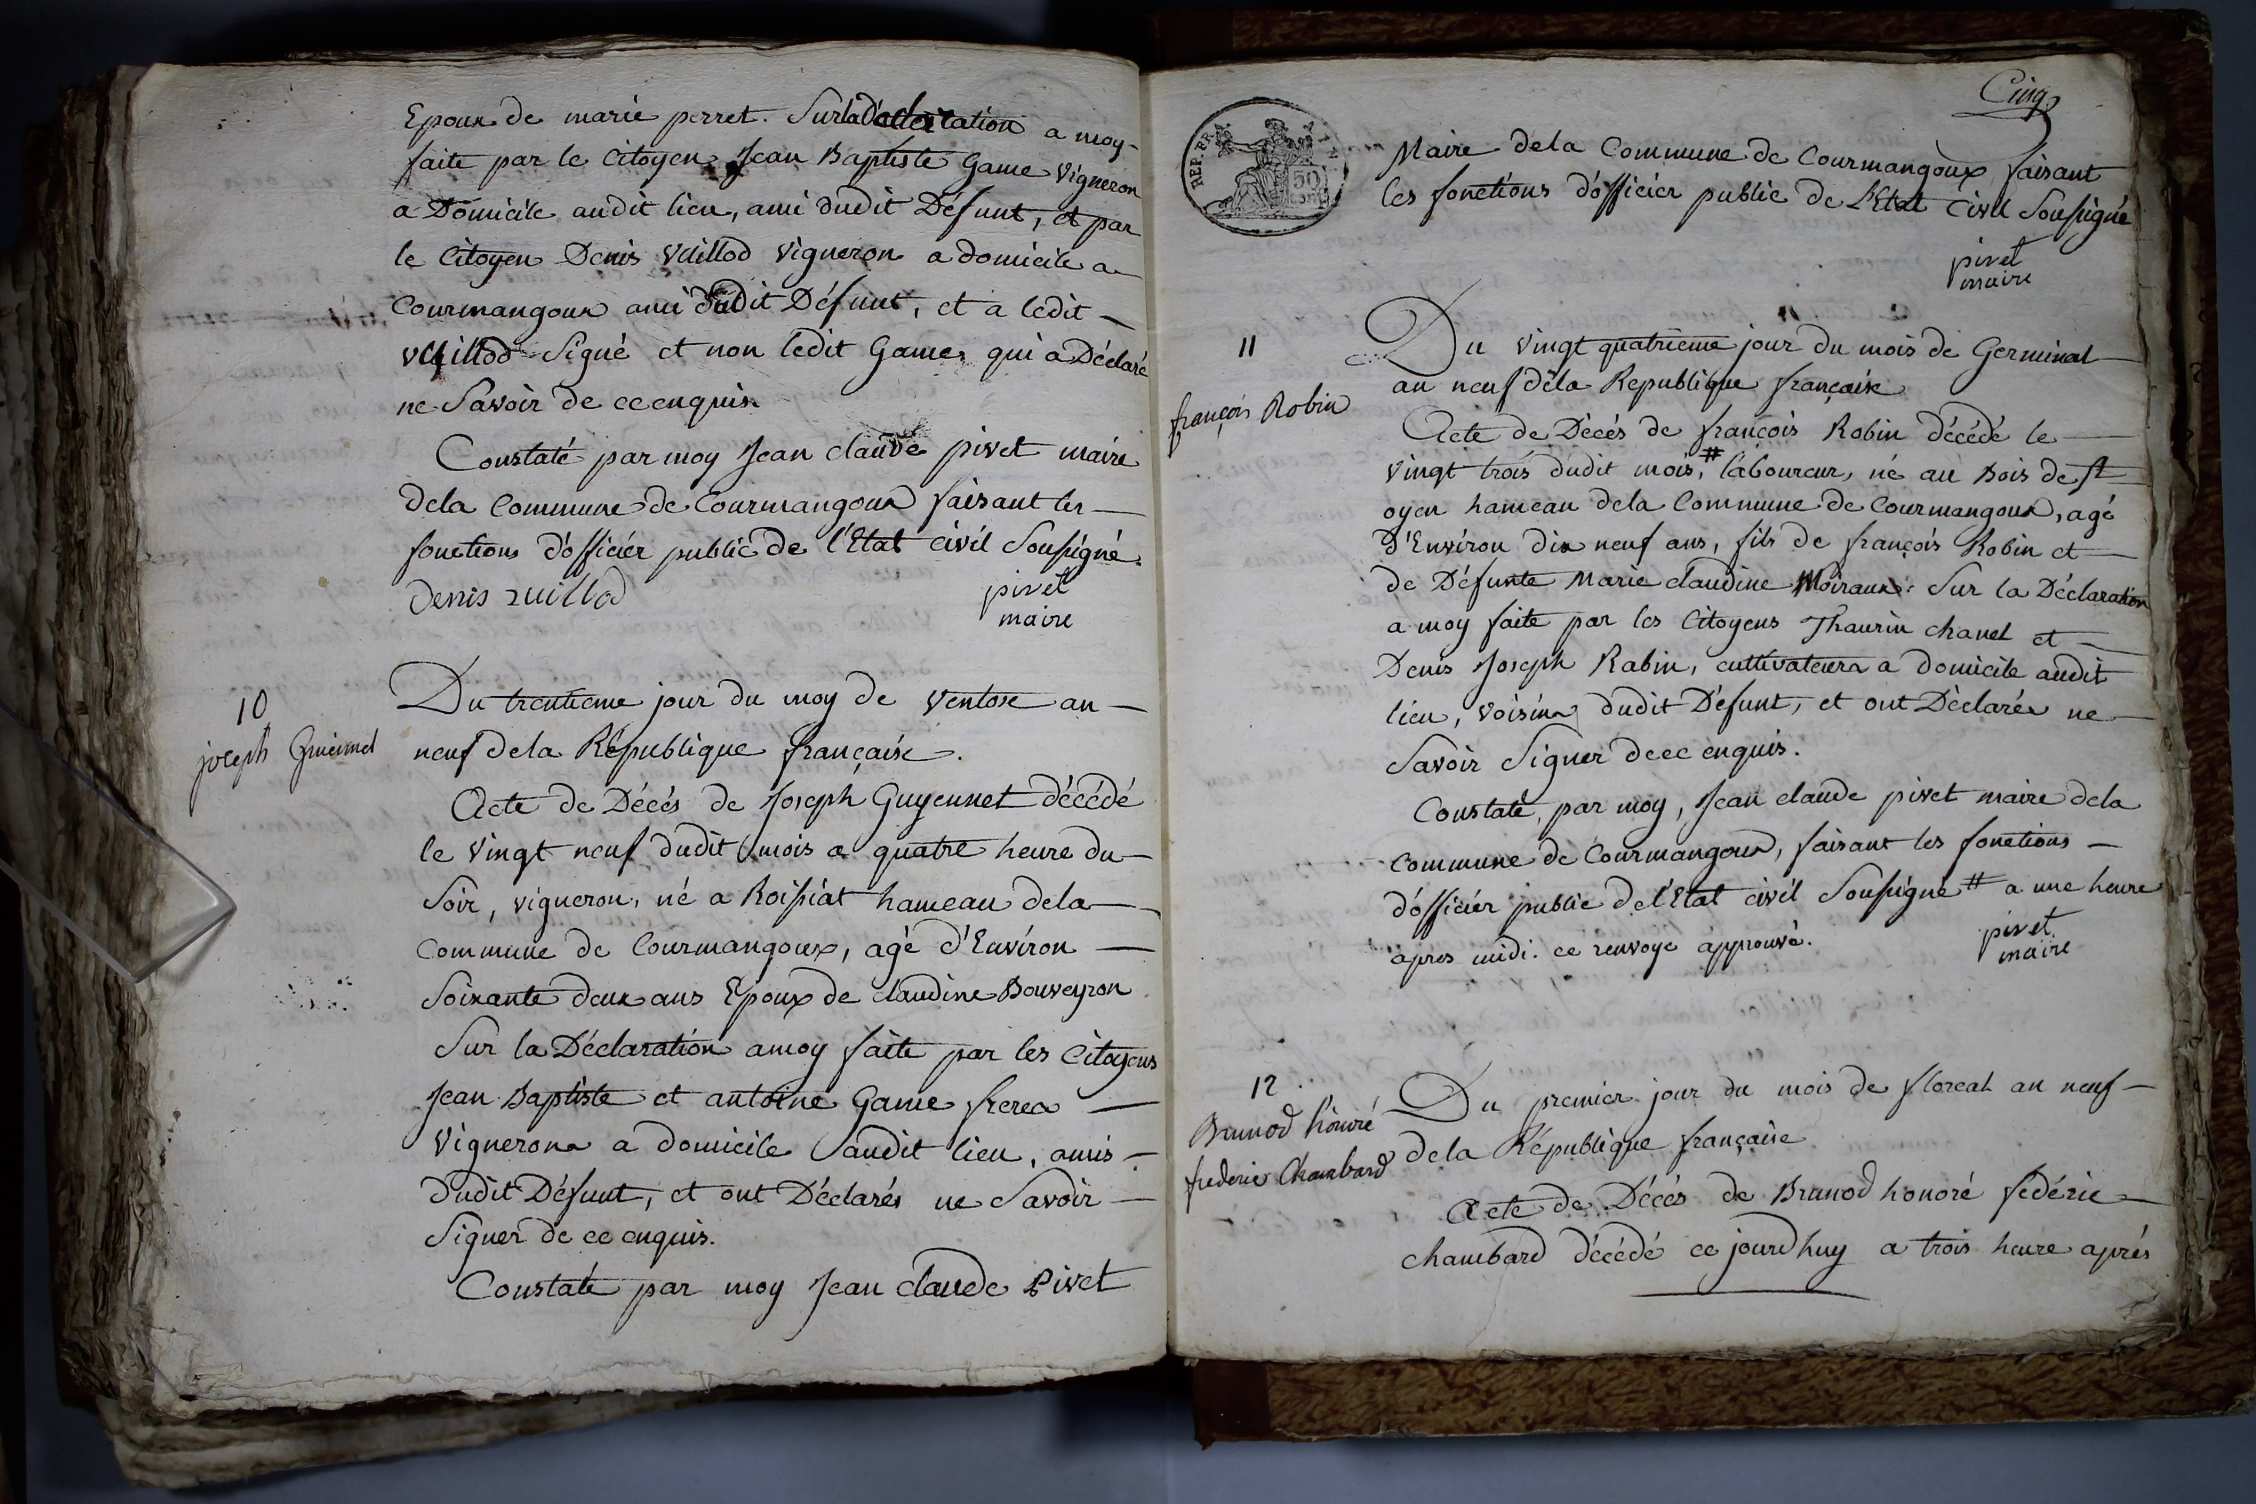 Epoux de marie perret. Sur la Déclaration a moy
faite par le Citoyen Jean Baptiste Game vigneron
a Domicile audit lieu, ami dudit Défunt, et par
le Citoyen Denis Vuillod vigneron a domicile a
Courmangoux ami dudit Défunt, et a ledit
vuillod Signé et non ledit Game, qui a Déclaré
ne Savoir de ce enquis
Constaté par moy Jean claude pivet maire
dela Commune de Courmangoux faisant les
fonctions d'officiér public de l'Etat civil Soussigné.
denis vuillod
pivet
maire
10
joseph Guienet
Du trentieme jour du moy de Ventose an
neuf dela République française.
Acte de Décés de Joseph Guyennet décédé
le vingt neuf dudit mois a quatre heure du
Soir, vigneron, né a Roissiat hameau dela
Commune de Courmangoux, agé d'Environ
Soixante deux ans Epoux de claudine Bouveyron
Sur la Déclaration amoy faite par les Citoyens
Jean Baptiste et antoine Game freres
Vignerons a domicile audit lieu, amis
dudit Défunt, et ont Déclarés ne Savoir
Signer de ce enquis.
Constaté par moy Jean claude Pivet
Cinq
REP. FRA.
50
Maire dela Commune de Courmangoux faisant
les fonctions d'officiér public de l'Etat civil Soussigné
pivet
maire
11
françois Robin
Du vingt quatrieme jour du mois de Germinal
an neuf dela Republique française
Acte de Décés de françois Robin décédé le
vingt trois dudit mois, # laboureur, né au Bois de st
oyen hameau dela Commune de Courmangoux, agé
d'Environ dix neuf ans, fils de françois Robin et
de Défunte Marie claudine Moiraux: Sur la Déclaration
a moy faite par les Citoyens Thaurin chanel et
Denis Joseph Rabin, cultivateurs a domicile audit
lieu, voisins dudit Défunt, et ont Déclarés ne
Savoir Signer dece enquis.
Constaté, par moy, Jean claude pivet maire dela
Commune de Courmangoux, faisant les fonctions
d'officiér public del'Etat civil Soussigné # a une heure
après midi. ce renvoye approuvé.
pivet
maire
12
Brunod honoré
frederic Chambard
Du premier jour du mois de floreal an neuf
dela République française
Acte de Décés de Brunod honoré fédéric
chambard décédé ce jourdhuy a trois heure aprés